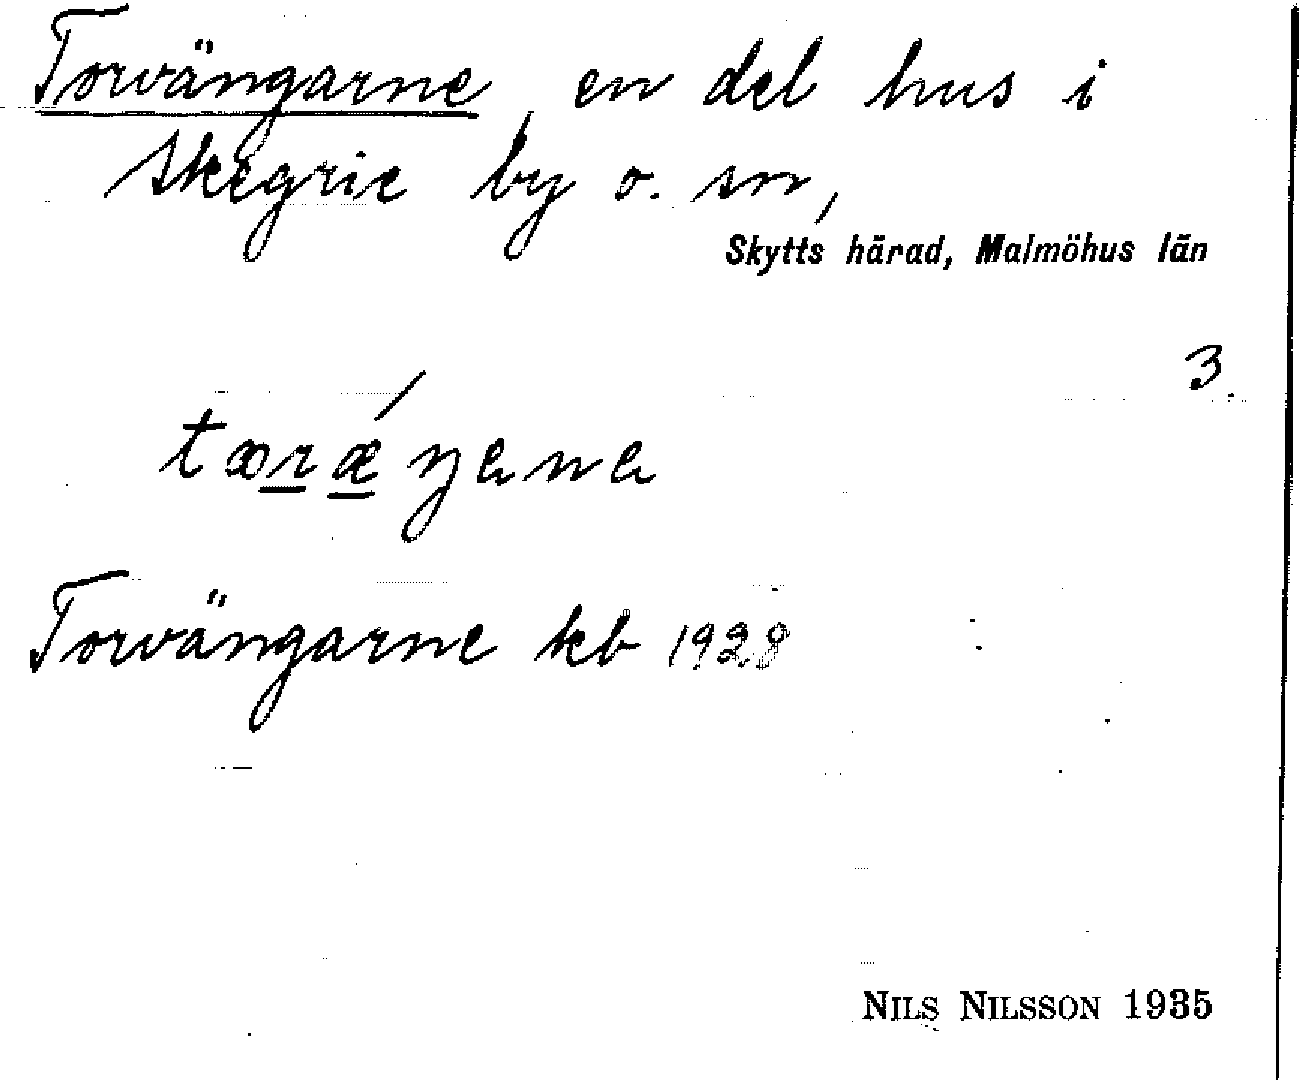 Torvängarne, en del hus i
Skegrie by o. sn,
Skytts härad, Malmöhus län
3.
tæræ´ŋana
Torvängarne kb 1928
NILS NILSSON 1935